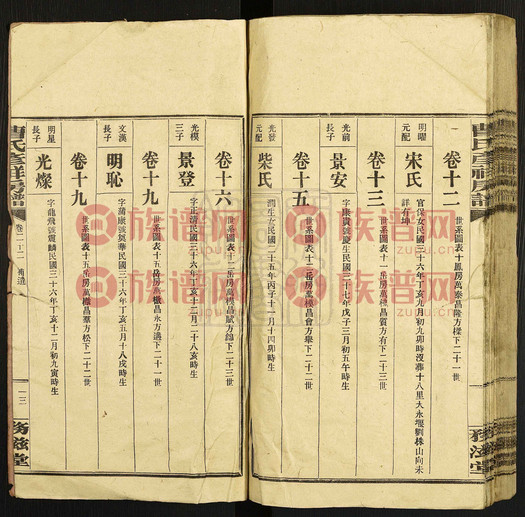 卷十二
世系圖表十鳳房萬泰昌隆方樑下二十一世
明曜
元配
宋氏
官保女民國三十六年丁亥九月初九卯時沒葬十八里大永堰劉株山向未
詳有坤
卷十三
世系圖表十
岳房萬機昌質方有下二十三世
光前
長子
景安
字康
號慶生民國三十七年戊子三月初五午時生
卷十五
世系圖表十二岳房萬機昌會方舉下二十二世
光發
元配
柴氏
潤生女民國二十五年丙子十一月十四卯時生
卷十六
世系圖表十二岳房萬機昌賦方錦下二十三世
光模
三子
景登
字正清民國三十六年丁亥十二月二十八亥時生
卷十九
世系圖表十五岳房萬機昌永方
下二十一世
文漢
長子
明恥
字蒲
號與華民國三十六年丁亥五月十八戌時生
卷十九
世系圖表十五岳房萬機昌羣方松下二十二世
明星
長子
光燦
字龍
號震麟民國三十六年丁亥十二月初九寅時生
曹氏彥祥房譜
卷二十二
補遺
一三
務滋堂
族譜网
zupu.cn